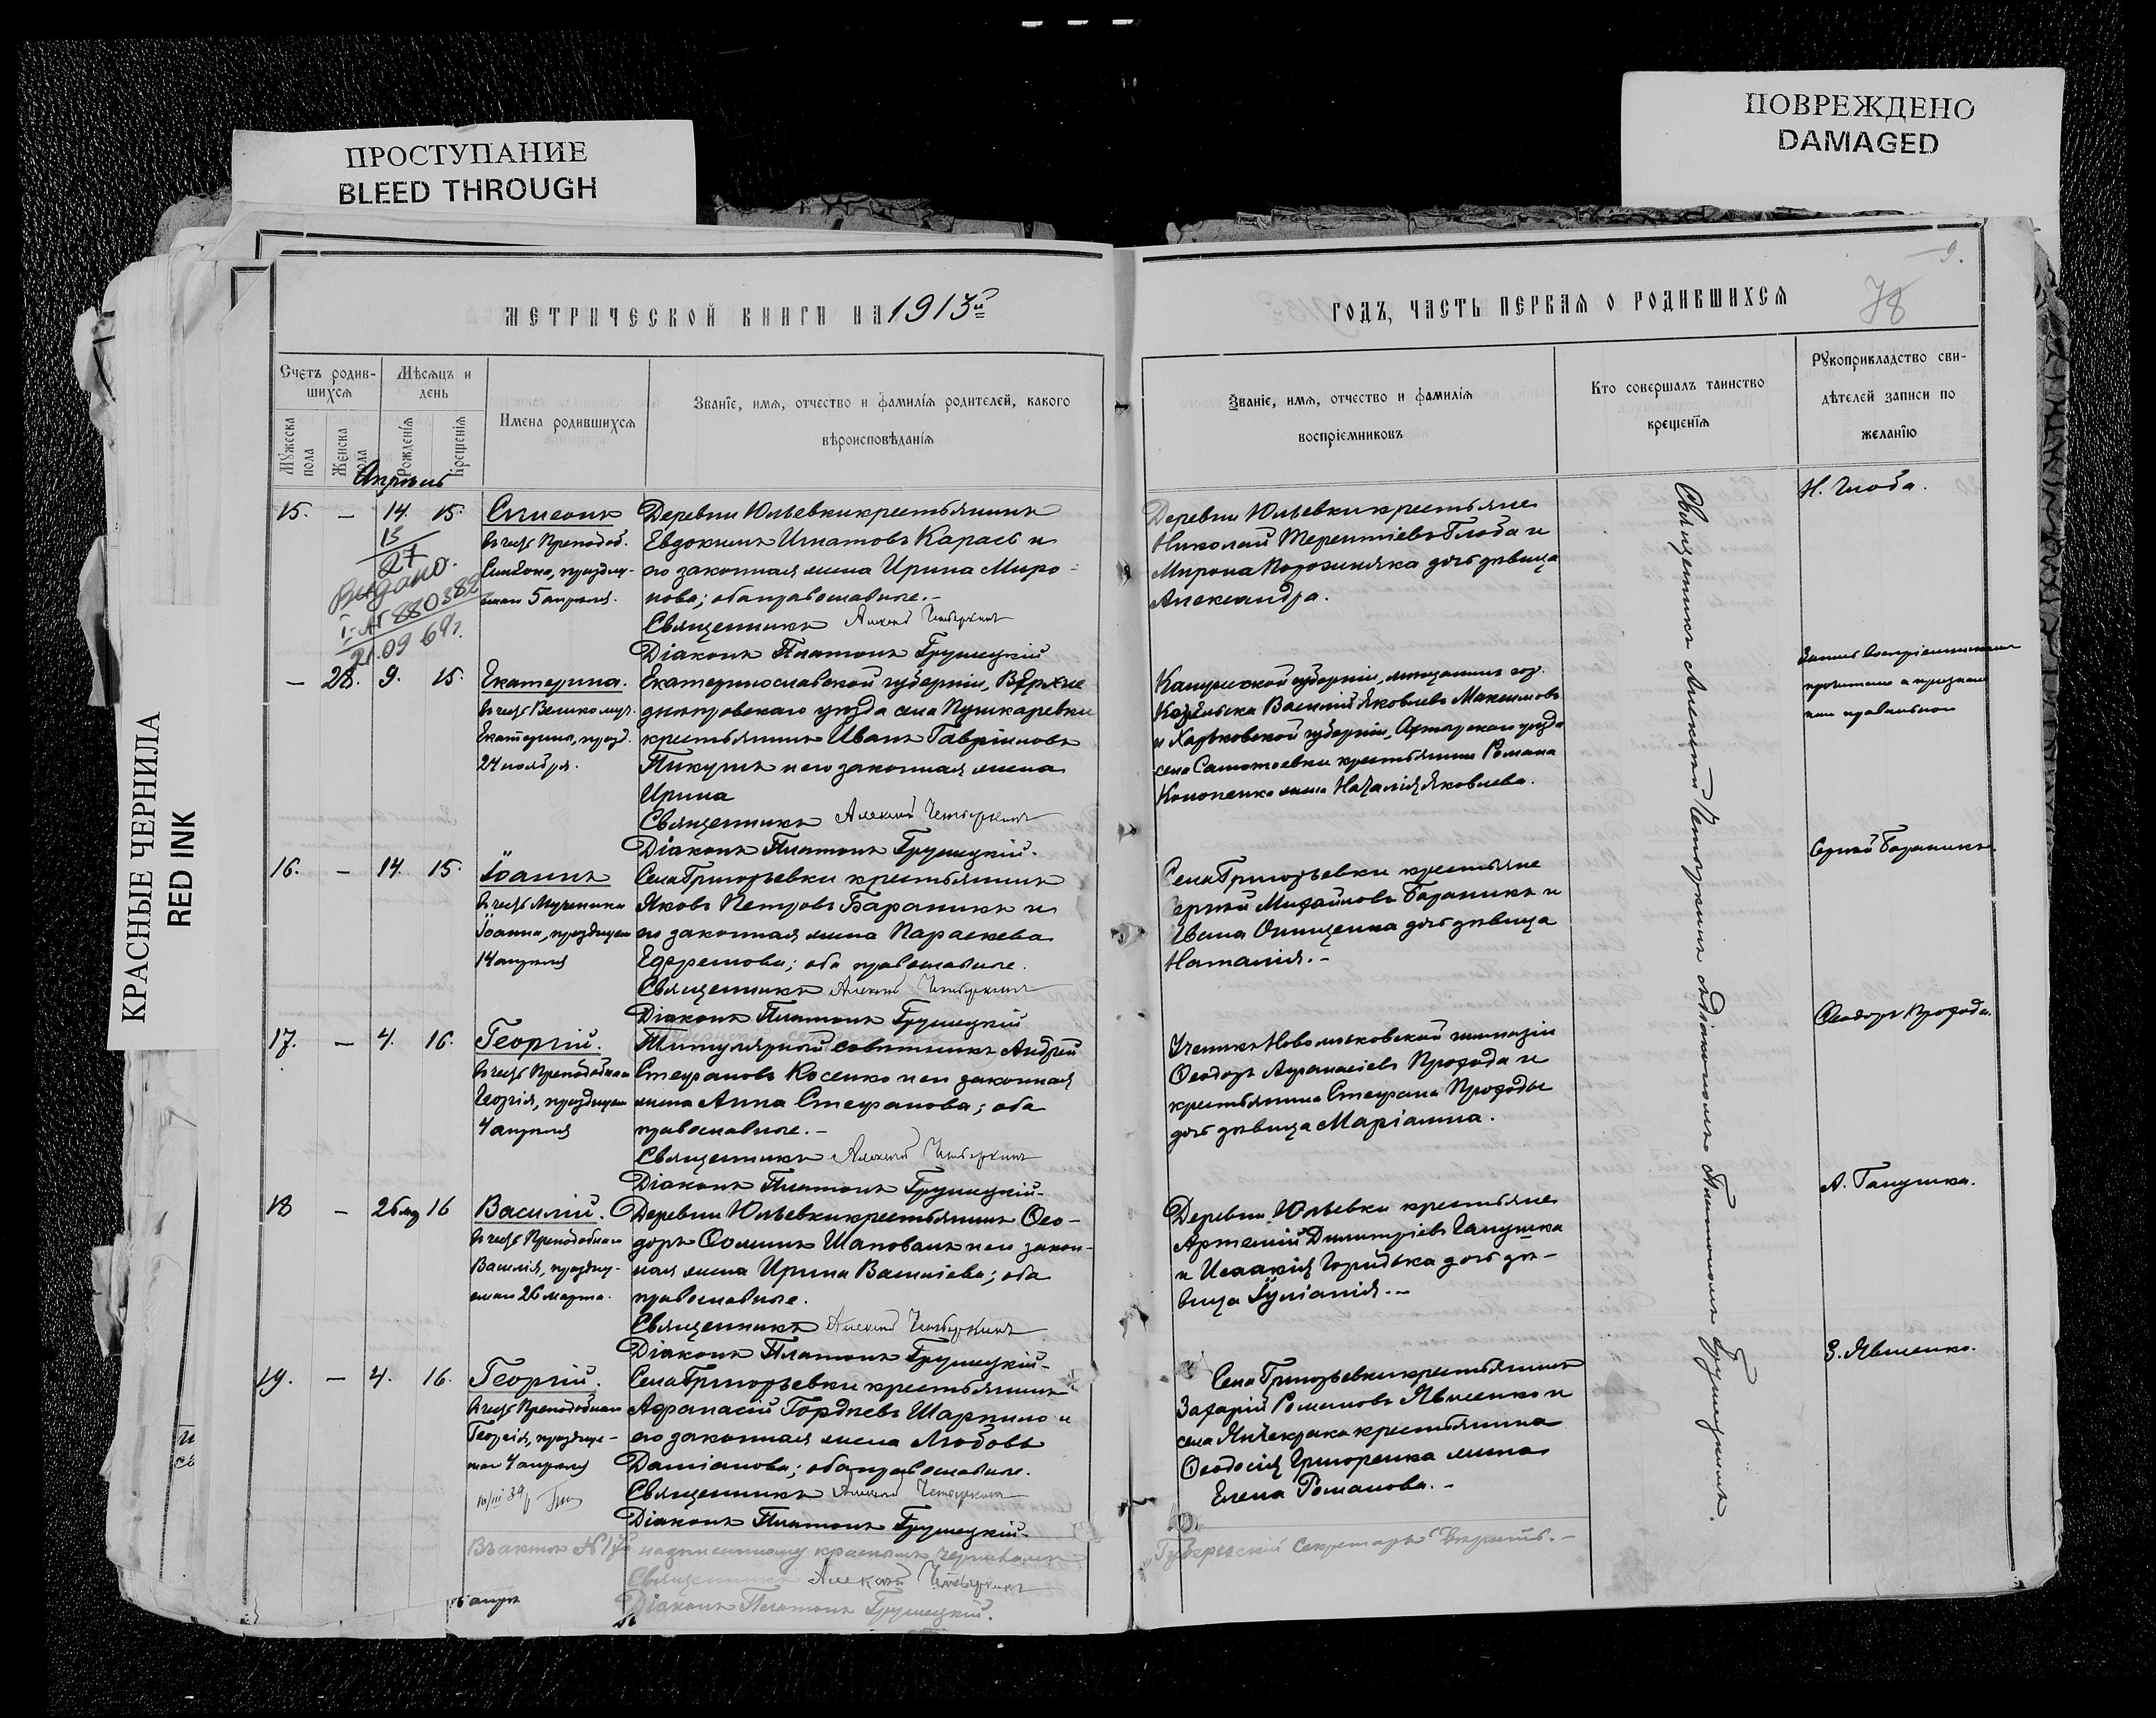 ПРОСТУПАНИЕ
BLEED THROUGH
ПОВРЕЖДЕНО
DAMAGED
КРАСНЫЕ ЧЕРНИЛА
RED INK
МЕТРИЧЕСКОЙ КНИГИ НА 1913й
Счетъ родившихся
Мѣсяцъ и день
Имена родившихся
Званіе, имя, отчество и фамилія родителей, какого
вѣроисповѣданія
Мужеска пола
Женска пола
Рожденія
Крещенія
Апрѣль
15. — 14. 15. Симеонъ
въ честь Преподоб.
Симеона, праздну-
емаго 5 апрѣля.
Деревни Юльевки крестьянинъ
Евдокимъ Игнатовъ Карась и
его законная жена Ирина Миро-
нова; оба православные.-
Священникъ Алексій Четверкинъ
Діаконъ Платонъ Грушецкій
15
27
Выдано.
I-АГ 880388
21.09 69г.
— 28. 9. 15. Екатерина.
въ честь Великомуч.
Екатерины, празд.
24 ноября.
Екатеринославской губерніи, Верхне
днѣпровскаго уѣзда села Пушкаревки
крестьянинъ Иванъ Гавріиловъ
Пикулъ и его законная жена
Ирина
Священникъ Алексій Четверкинъ
Діаконъ Платонъ Грушецкій.
16. — 14. 15. Іоаннъ
въ честь Мученика
Іоанна, празднуем
14 апрѣля
Села Григорьевки крестьянинъ
Яковъ Петровъ Бараникъ и
его законная жена Параскева
Ефремова; оба православные.
Священникъ Алексій Четверкинъ
Діаконъ Платонъ Грушецкій
17. — 4. 16. Георгій.
въ честь Преподобнаго
Георгія, празднуем
4 апрѣля
Титулярный совѣтникъ Андрей
Стефановъ Косенко и его законная
жена Анна Стефанова; оба
православные.-
Священникъ Алексій Четверкинъ
Діаконъ Платонъ Грушецкій-
18 — 26 мр 16 Василій.
въ честь Преподобнаго
Василія, праздну-
емаго 26 марта.
Деревни Юльевки крестьянинъ Ѳео-
доръ Ѳоминъ Шаповалъ и его закон-
ная жена Ирина Василіева; оба
православные.
Священникъ Алексій Четверкинъ
Діаконъ Платонъ Грушецкій-
19. — 4. 16. Георгій.
въ честь Преподобнаго
Георгія, праздуе-
маго 4 апрѣля
Села Григорьевки крестьянинъ
Афанасій Гордѣевъ Шарпило и
его законная жена Любовь
Даміанова; оба православные.
Священникъ Алексій Четверкинъ
Діаконъ Платонъ Грушецкій-
10/III 39
Въ актѣ № 17й надписанному красными чернилами
Священникъ Алексій Четверкинъ
Діаконъ Платонъ Грушецкій.
9.
78
ГОДЪ, ЧАСТЬ ПЕРВАЯ О РОДИВШИХСЯ
Званіе, имя, отчество и фамилія
воспріемниковъ
Кто совершалъ таинство
крещенія
Рукоприкладство сви-
дѣтелей записи по
желанію
Деревни Юльевки крестьяне
Николай Терентіевъ Глоба и
Мирона Порожняка дочь дѣвица
Александра.
Н. Глоба.
Калужской губерніи, мѣщанинъ гор.
Козельска Василій Яковлевъ Максимовъ
и Харьковской губерніи, Ахтырскаго уѣзда
села Самотоевки крестьянина Романа
Кононенко жена Наталія Яковлева.
Запись воспріемниками
прочитана и признана
ими правильной
Села Григорьевки крестьяне
Сергѣй Михайловъ Бараникъ и
Ивана Онищенка дочь дѣвица
Наталія.-
Сергѣй Бараникъ
Ученикъ Новомосковской гимназіи
Ѳеодоръ Афанасіевъ Прохода и
крестьянина Стефана Проходы
дочь дѣвица Маріанна.
Ѳеодоръ Прохода.
Деревни Юльевки крестьяне
Артемій Димитріевъ Галушка
и Исаакія Горидька дочь дѣ-
вица Іуліанія.-
А. Галушка.
Села Григорьевки крестьянинъ
Захарій Романовъ Явленко и
села крестьянина
Ѳеодосія Григоренка жена
Елена Романова.-
З. Явленко.
Губернскій Секретарь вѣрить.-
Священникъ Алексій Четверкинъ съ Діакономъ Платономъ Грушецкимъ.